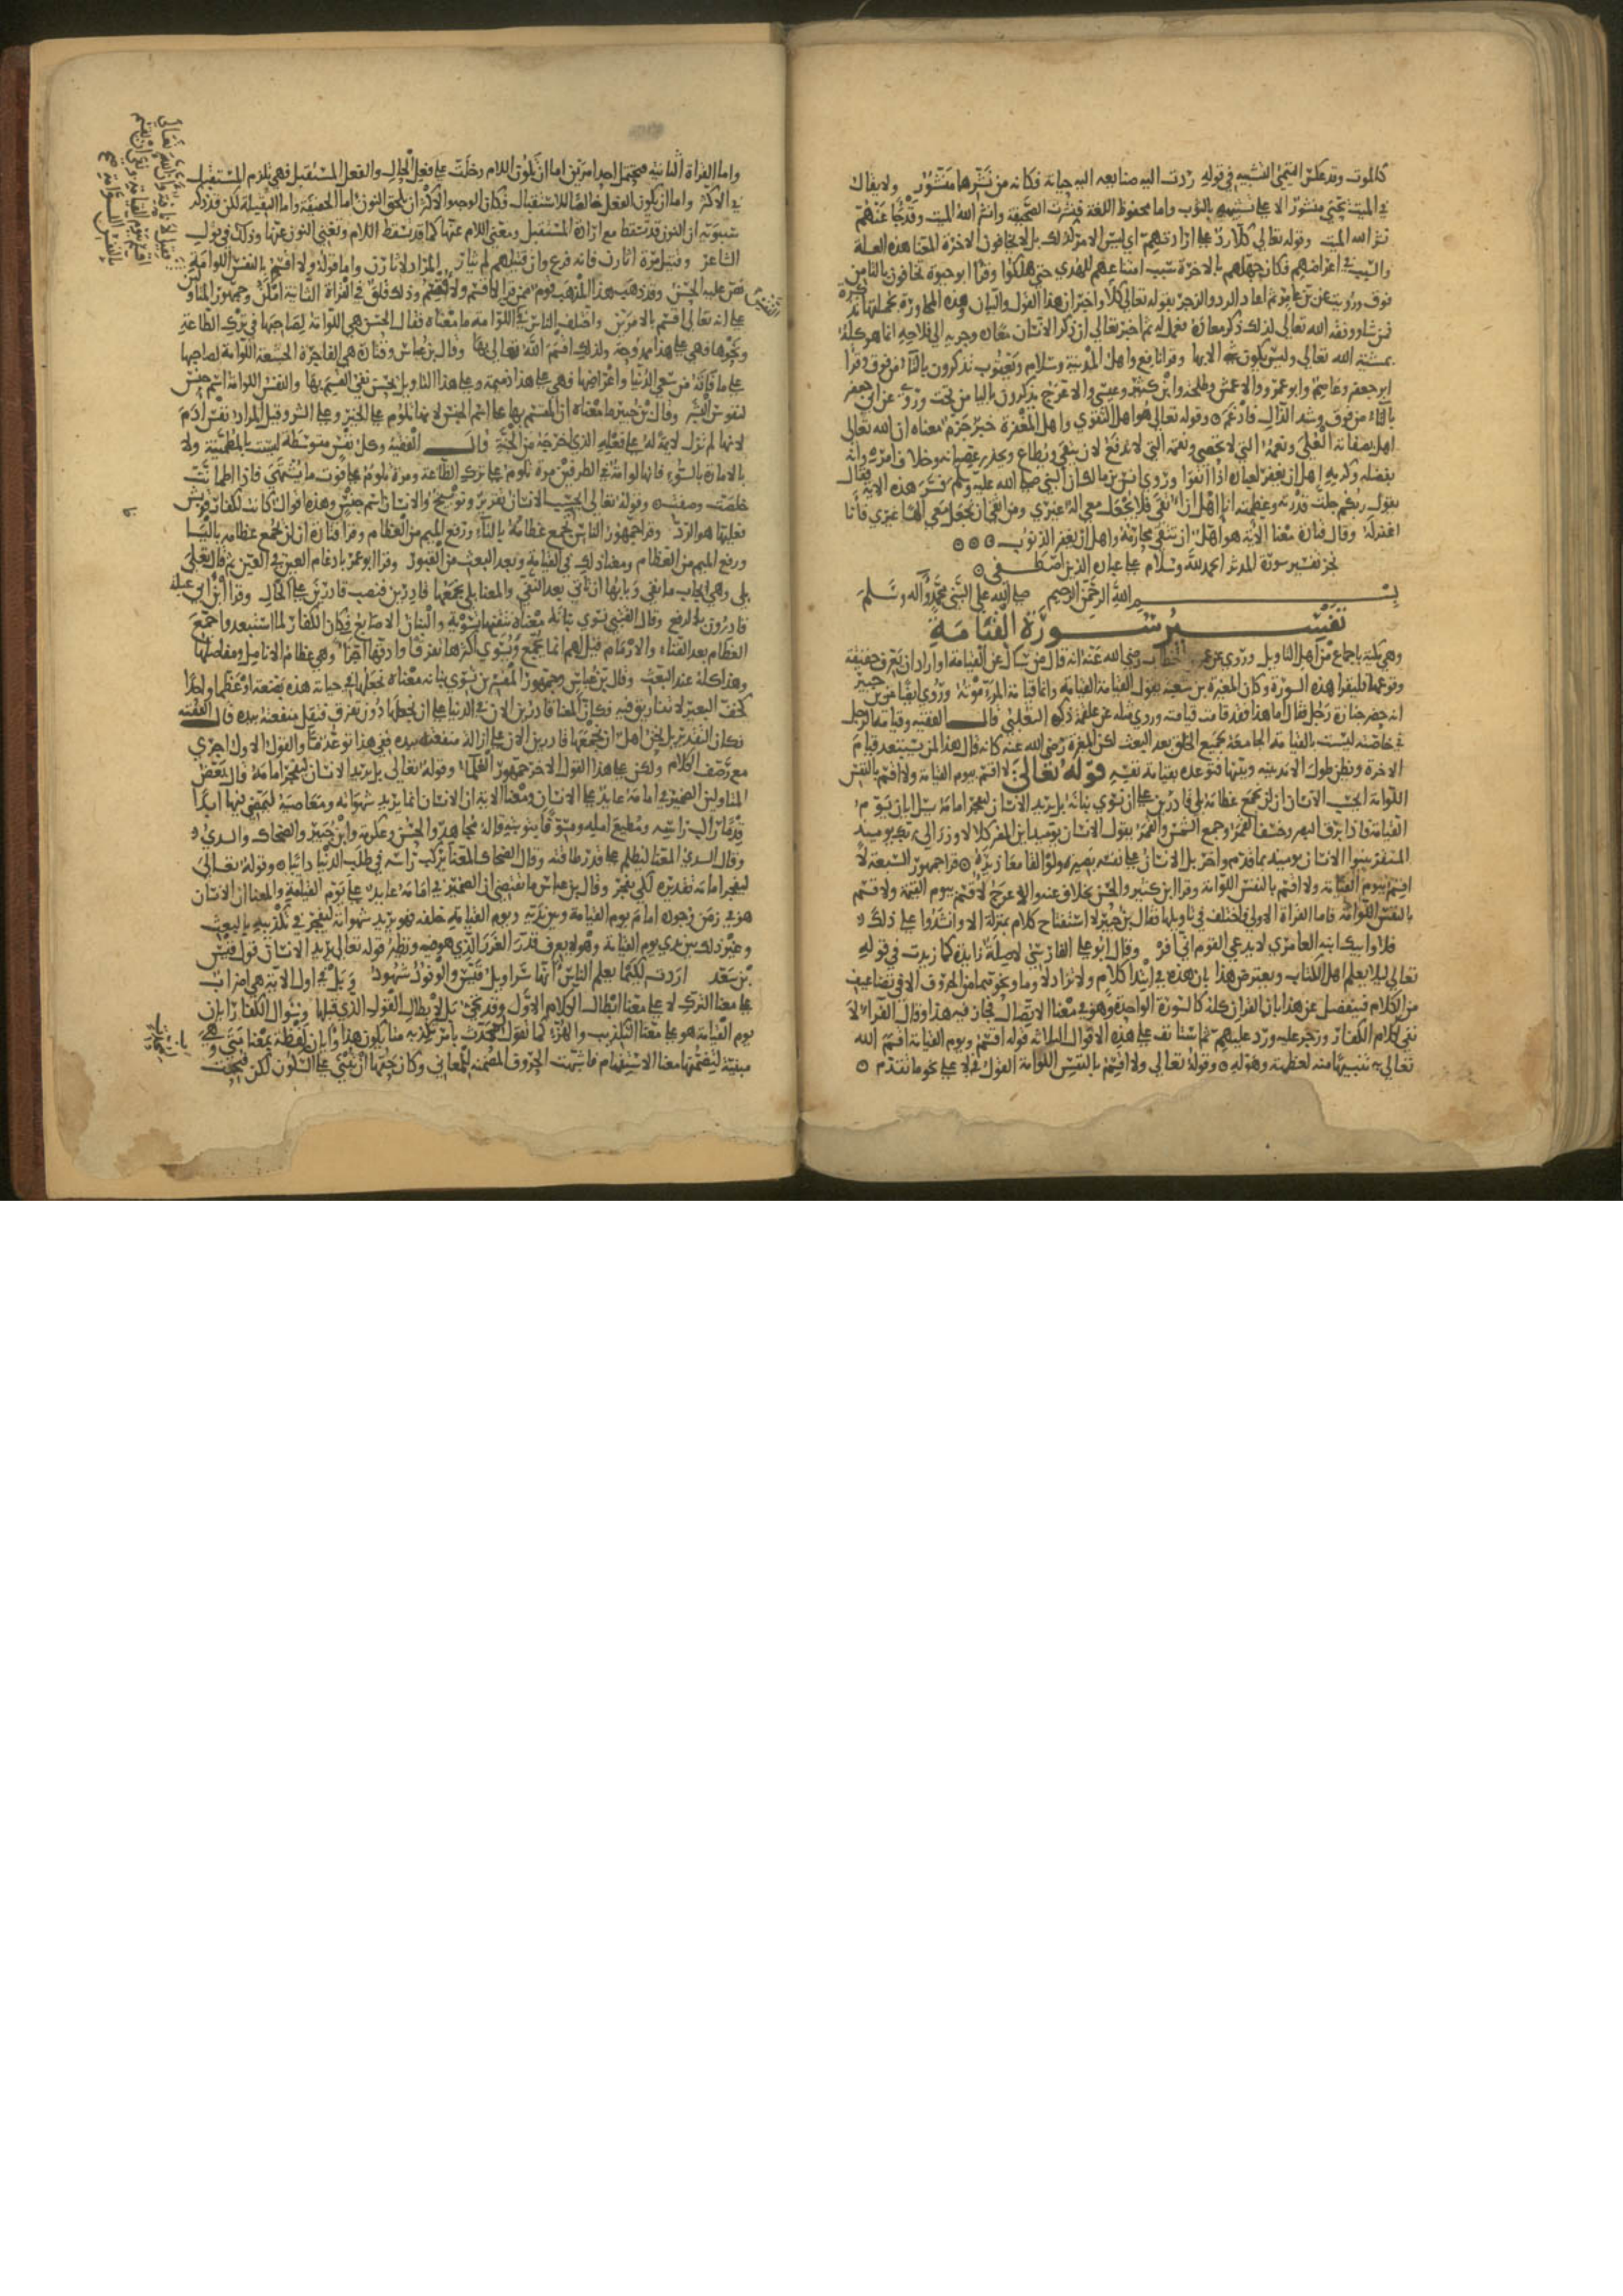 كالموت وقد عكس التيمي التشبيه في قوله ردت اليه صنايعه اليه حياته فكانه من نشرها منشور ولا يقال
في الميت يحيى منشور الا على تشبيهه بالثوب واما محفوظ اللغة فنشرت الصحيفة وانشر الله الميت وقد جا عنهم
نشر الله الميت وقوله تعالى كلا رد على ارادتهم اي ليس الامر كذلك بل لا يخافون الاخرة المعنا هذه العلة
والسبب في اعراضهم فكان جهلهم بالاخرة سبب امتناعهم للهدى حتى هلكوا وقرا ابو حيوة تخافون بالتا من
فوق ورويت عن ابن عامر ثم اعاد الرد والزجر بقوله تعالى كلا واخبر ان هذا القول والبيان وهذه المحاورة بجملتها تذكرة
فمن شا ووفقه الله تعالى لذلك ذكر معاده فعمل له ثم اخبر تعالى ان ذكر الانسان معاده وجريه الى فلاحه انما هو كله
بمشية الله تعالى وليس يكون شي الا بها وقرا نافع واهل المدينة وسلام ويعقوب تذكرون بالتا من فوق وقرا
ابو جعفر وعاصم وابو عمرو والاعمش وطلحة وابن كثير وعيسى والاعرج يذكرون باليا من تحت وروي عن ابي جعفر
بالتا من فوق وشد الذال فادغم وقوله تعالى هو اهل التقوى واهل المغفرة خبر جزم معناه ان الله تعالى
اهل بصفاته العلى ونعمه التي لا تحصى ونقمه التي لا تدفع لان يتقى ويطاع ويحذر عصيانه وخلاف امره وانه
بفضله وكرمه اهل ان يغفر لعباده اذا اتقوا وروى انس بن مالك ان النبي صلى الله عليه وسلم فسر هذه الاية فقال
يقول ربكم جلت قدرته وعظمته انا اهل ان اتقى فلا يجعل معي اله غيري ومن اتقى ان يجعل معي الها غيري فانا
اغفر له وقال قتادة معنا الاية هو اهل ان تتقى محارمه واهل ان يغفر الذنوب
نجز تفسير سورة المدثر الحمد لله وسلام على عباده الذين اصطفى
بسم الله الرحمن الرحيم صلى الله على النبي محمد واله وسلم
تفسير سورة القيامة
وهي مكية باجماع من اهل التاويل وروي عن عمر بن الخطاب رضي الله عنه انه قال من سال عن القيامة او اراد ان يعرف حقيقة
وقوعها فليقرا هذه السورة وكان المغيرة بن شعبة يقول القيامة القيامة وانما قيامة المرء موته وروي ايضا عن بن جبير
انه حضر جنازة رجل فقال اما هذا فقد قامت قيامته وروي مثله عن علقمة ذكره الثعلبي قال الفقيه وقيامة الرجل
في خاصته ليست بالقيامة الجامعة لجميع الخلق بعد البعث لكن المغيرة رضي الله عنه كانه قال هذا لمن يستبعد قيام
الاخرة ويظن طول الامد بينه وبينها فتوعده بقيامة نفسه قوله تعالى لا اقسم بيوم القيامة ولا اقسم بالنفس
اللوامة ايحسب الانسان ان لن نجمع عظامه بلى قادرين على ان نسوي بنانه بل يريد الانسان ليفجر امامه يسل ايان يوم
القيامة فاذا برق البصر وخسف القمر وجمع الشمس والقمر يقول الانسان يومئذ اين المفر كلا لا وزر الى ربك يوميذ
المستقر ينبوا الانسان يوميذ بما قدم واخر بل الانسان على نفسه بصيرة ولو القا معاذيره قرا جمهور السبعة لا
اقسم بيوم القيامة ولا اقسم بالنفس اللوامة وقرا ابن كثير والحسن بخلاف عنه والاعرج لاقسم بيوم القيمة ولاقسم
بالنفس اللوامة فاما القراة الاولى فاختلف في تاويلها فقال بن جبير لا استفتاح كلام بمنزلة الا وانشدوا على ذلك
فلا وابيك ابنة العامري لا يدعي القوم اني افر وقال ابو علي الفارسي لا صلة زايدة كما زيدت في قوله
تعالى ليلا يعلم اهل الكتاب ويعترض هذا بان هذه في ابتدا كلام ولا تزاد لا وما ونحوهما من الحروف الا في تضاعيف
من الكلام فينفصل عن هذا بان القران كله كالسورة الواحدة وهو في معنا الاتصال فجاز فيه هذا وقال الفراء لا
نفي لكلام الكفار وزجر عليه ورد عليهم ثم استانف على هذه الاقوال الثلاثة قوله اقسم ويوم القيامة اقسم الله
تعالى به تنبيها منه لعظمه وهوله وقوله تعالى ولا اقسم بالنفس اللوامة القول في لا على نحو ما تقدم
واما القراة الثانية فتحتمل احد امرين اما ان تكون اللام دخلت على فعل الحال والفعل المستقبل فهي تلزم المستقبل
في الاكثر واما ان يكون الفعل خالصا للاستقبال فكان الوجه والاكثر ان تلحق النون اما الخفيفة واما الثقيلة لكن قد ذكر
سيبويه ان النون قد تسقط مع ارادة المستقبل وتغني اللام عنها كما قد تسقط اللام وتغني النون عنها وذلك في قول
الشاعر وقتيل مرة اثارن فانه فرع وان قتيلهم لم يثار المراد لاثارن واما قوله ولا اقسم بالنفس اللوامة
على انه تعالى اقسم بالامرين واختلف الناس في اللوامة ما معناه فقال الحسن هي اللوامة لصاحبها في ترك الطاعة
ونحوها فهي على هذا ممدوحة ولذلك اقسم الله تعالى بها وقال بن عباس وقتادة هي الفاجرة الجشعة اللوامة لصاحبها
على ما فاته من سعي الدنيا واعراضها فهي على هذا ذميمة وعلى هذا التاويل يحسن نفي القسم بها والنفس اللوامة اسم جنس
لنفوس البشر وقال بن جبير ما معناه ان القسم بها على اسم الجنس لانها تلوم على الخير وعلى الشر وقيل المراد نفس ادم
لانها لم تزل لايمة له على فعله الذي اخرجه من الجنة قال الفقيه وكل نفس متوسطة ليست بالمطمينة ولا
بالامارة بالسوء فانها لوامة في الطرفين مرة تلوم على ترك الطاعة ومرة تلوم على فوت ما تشتهي فاذا اطمانت
خلصت وصفت وقوله تعالى ايحسب الانسان تقرير وتوبيخ والانسان اسم جنس وهذه اقوال كانت لكفار قريش
فعليها هو الرد وقرا جمهور الناس نجمع عظامه بالنون وقرا قتادة ان لن تجمع عظامه بالتا
ورفع الميم من العظام ومعنا ذلك في القيامة وبعد البعث من القبور وقرا ابو عمر بادغام العين في العين ثم قال تعالى
بلى وهي ايجاب ما نفي وبابها ان تاتي بعد النفي والمعنا بلى نجمعها قادرين فنصب قادرين على الحال وقرا ابن ابي عبلة
قادرون بالرفع وقال القتبي نسوي بنانه معناه نتقنها سوية والبنان الاصابع فكان الكفار لما استبعدوا جمع
العظام بعد الفناء والارمام قيل لهم انما تجمع ويسوى اكثرها تفرقا وادقها اجزا وهي عظام الانامل ومفاصلها
وهذا كله عند البعث وقال بن عباس وجمهور المفسرين نسوي بنانه معناه نجعلها في حياته هذه بضعة او عظما واحدا
كخف البعير لا تفاريق فيه فكان المعنا قادرين الان في الدنيا على ان نجعلها دون تفرق فتقل منفعته بيده قال الفقيه
فكان التقدير بل نحن اهل ان نجمعها قادرين الان على ازالة منفعته بيده ففي هذا توعد ما والقول الاول اجرى
مع رصف الكلام ولكن على هذا القول الاخر جمهور العلما وقوله تعالى بل يريد الانسان ليفجر امامه قال بعض
المتاولين الضمير في امامه عايد على الانسان ومعنا الاية ان الانسان انما يريد شهواته ومعاصيه ليمضي فيها ابدا
قدما راكبا راسه ومطيع امله ومسوفا بتوبته قاله مجاهد والحسن وعكرمة وابن جبير والضحاك والسدي
وقال السدي المعنا ليظلم على قدر طاقته وقال الضحاك المعنا يركب راسه في طلب الدنيا دايما وقوله تعالى
ليفجر امامه تقديره لكي يفجر وقال بن عباس ما يقتضي ان الضمير في امامه عايد على يوم القيامة والمعنا ان الانسان
هو في زمن وجوده امام يوم القيامة وبين يديه ويوم القيامة خلفه فهو يريد شهواته ليفجر في تكذيبه بالبعث
وغير ذلك بين يدي يوم القيامة وهو لا يعرف قدر الضرر الذي هو فيه ونظير قوله تعالى يريد الانسان قول قيس
بن سعد اردت لكيما يعلم الناس انها سراويل قيس والوفود شهود وبل في اول الاية هي اضراب
على معنا الترك لا على معنا ابطال الكلام الاول وقد تجيء بل لابطال القول الذي قبلها وسوال الكفار ايان
يوم القيامة هو على معنا التكذيب والهزء كما تقول لمحدث بامر تكذبه متا يكون هذا وايان لفظة بمعنا متى وهي
مبنية لتضمنها معنا الاستفهام فاشبهت الحروف المضمنة للمعاني وكان حقها ان تبنى على السكون لكن فتحت